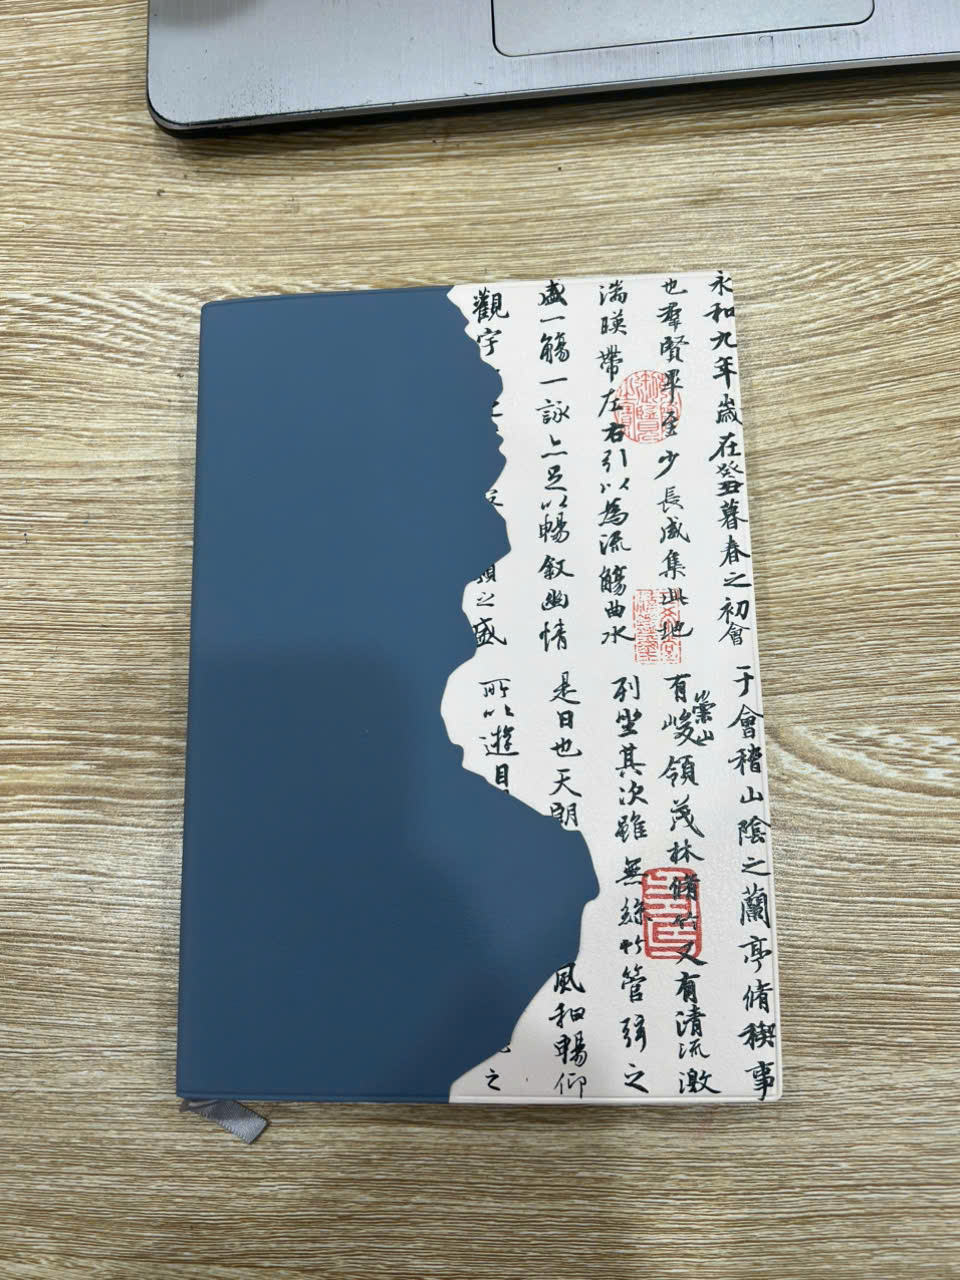 永和九年歲在癸丑暮春之初會于會稽山陰之蘭亭脩稧事
也羣賢畢至少長咸集此地有崇山峻領茂林脩竹又有清流激
湍暎帶左右引以為流觴曲水列坐其次雖無絲竹管弦之
盛一觴一詠亦足以暢敘幽情是日也天朗風和暢仰
觀宇之類之盛所以遊目之